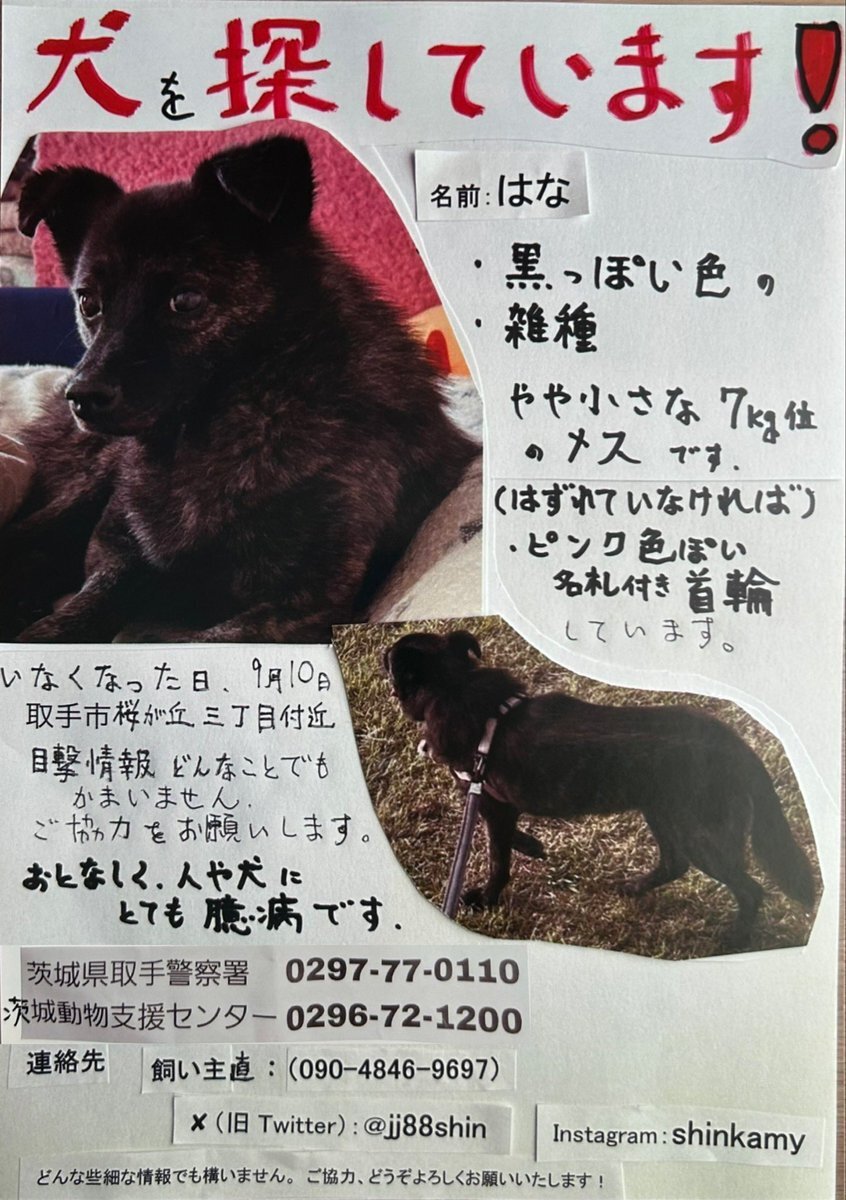 犬を探しています!
名前：はな
・黒っぽい色の
・雑種
やや小さな 7kg位
のメスです.
(はずれていなければ)
・ピンク色ぽい
名札付き首輪
しています。
いなくなった日、9月10日
取手市桜が丘 三丁目付近
目撃情報 どんなことでも
かまいません.
ご協力をお願いします。
おとなしく、人や犬に
とても臆病です.
茨城県取手警察署 0297-77-0110
茨城動物支援センター 0296-72-1200
連絡先 飼い主直：(090-4846-9697)
✘（旧 Twitter）：@jj88shin
Instagram：shinkamy
どんな些細な情報でも構いません。ご協力、どうぞよろしくお願いいたします！